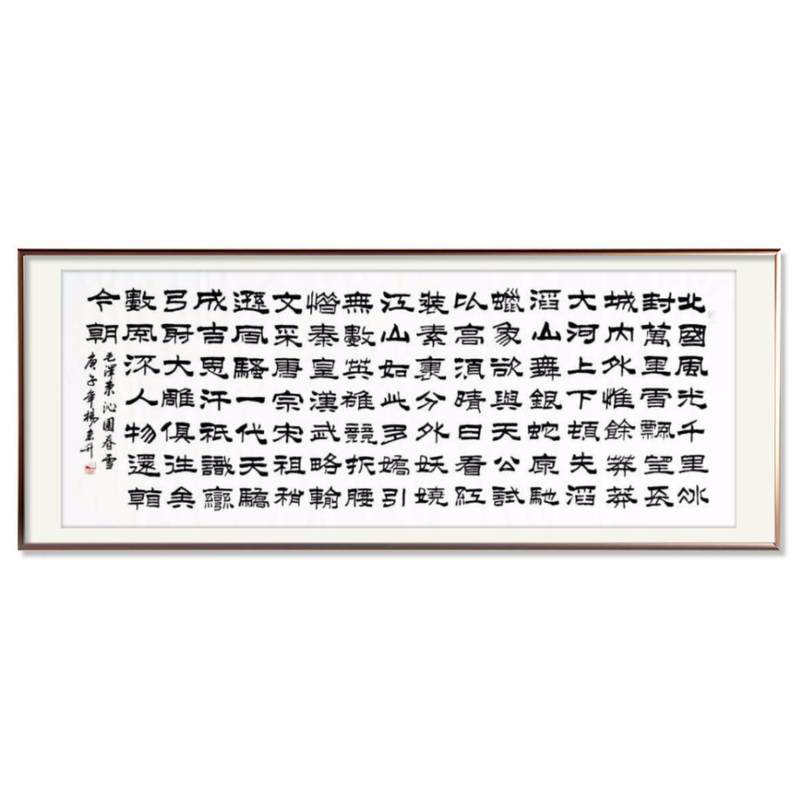 北國風光千里冰
封萬里雪飄望長
城内外惟餘莽莽
大河上下頓失滔
滔山舞銀蛇原馳
蠟象欲與天公試
以高須晴日看紅
裝素裹分外妖嬈
江山如此多嬌引
無數英雄競折腰
惜秦皇漢武略輸
文采唐宗宋祖稍
遜風騷一代天驕
成吉思汗祇識彎
弓射大雕俱往矣
數風流人物還看
今朝
毛澤東沁園春雪
庚子年楊升